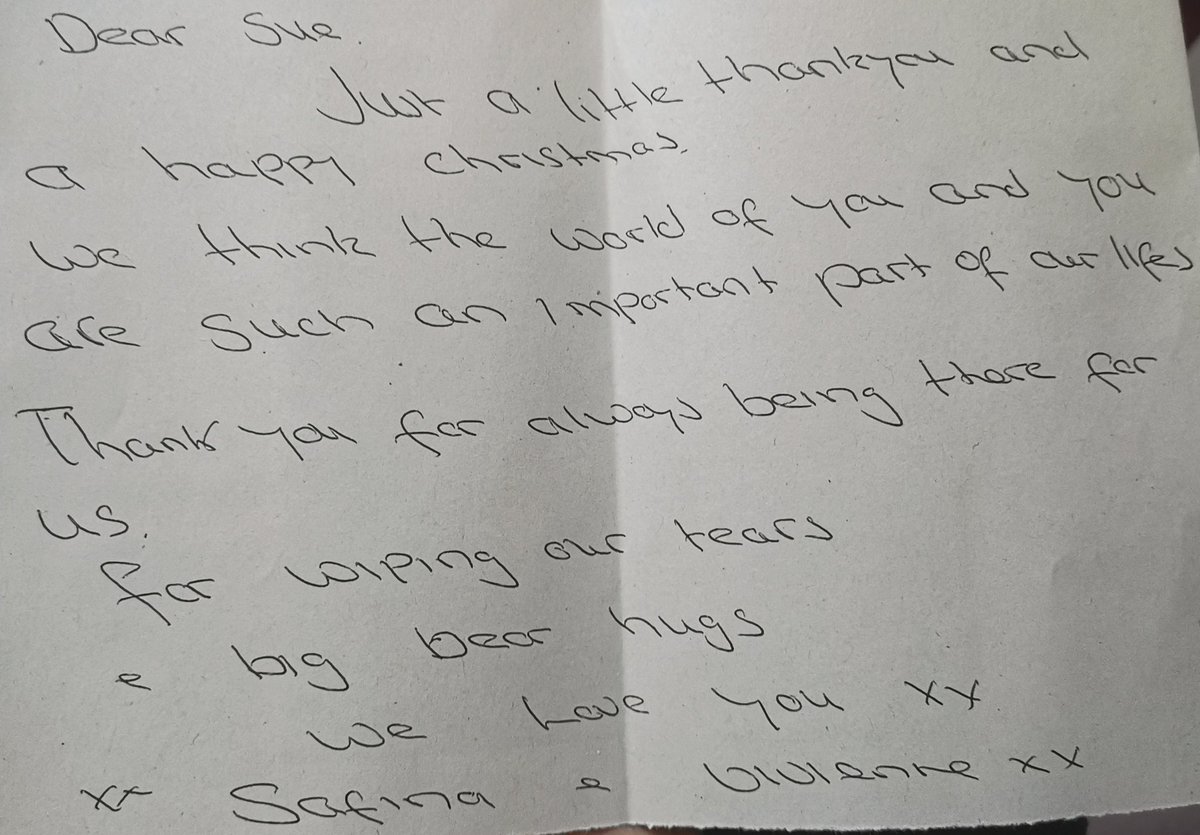 Dear Sue.
Just a little thankyou and
a happy christmas.
We think the world of you and you
are such an important part of our lifes
Thank you for always being there for
us.
for wiping our tears
e big bear hugs
we Love you xx
xx Safina e Vivienne xx